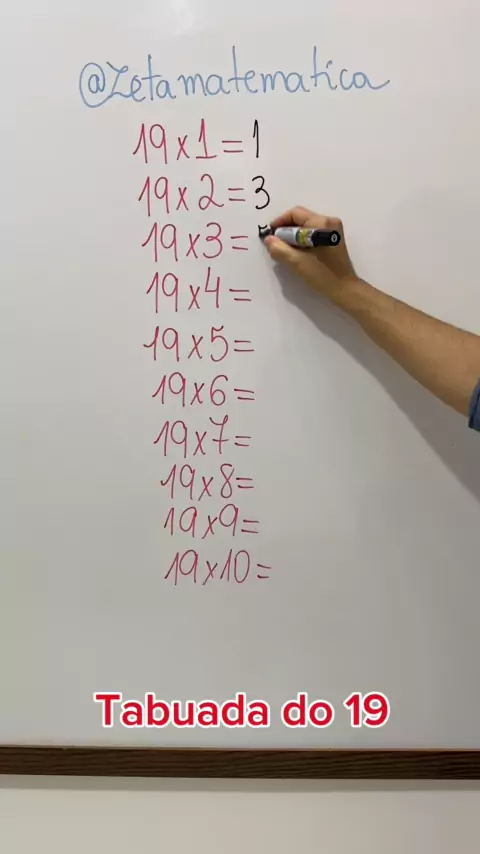 @Zetamatematica
19x1=1
19x2=3
19x3=
19x4=
19x5=
19x6=
19x7=
19x8=
19x9=
19x10=
Tabuada do 19